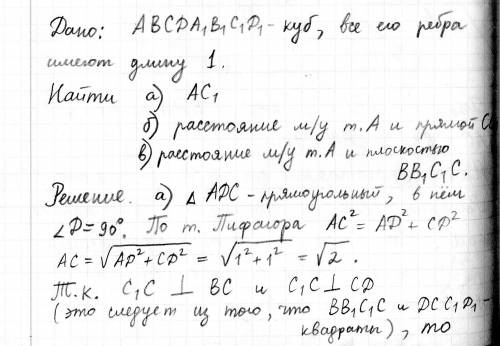 Дано: ABCDA₁B₁C₁D₁ - куб, все его ребра
имеют длину 1.
Найти а) AC₁
б) расстояние м/у т. А и прямой
в) расстояние м/у т. А и плоскостью
BB₁C₁C.
Решение. а) △ ADC - прямоугольный, в нём
∠D = 90°. По т. Пифагора AC² = AD² + CD²
AC = √AD² + CD² = √1² + 1² = √2.
Т.к. C₁C ⊥ BC и C₁C ⊥ CD
(это следует из того, что BB₁C₁C и DCC₁D₁ -
квадраты), то